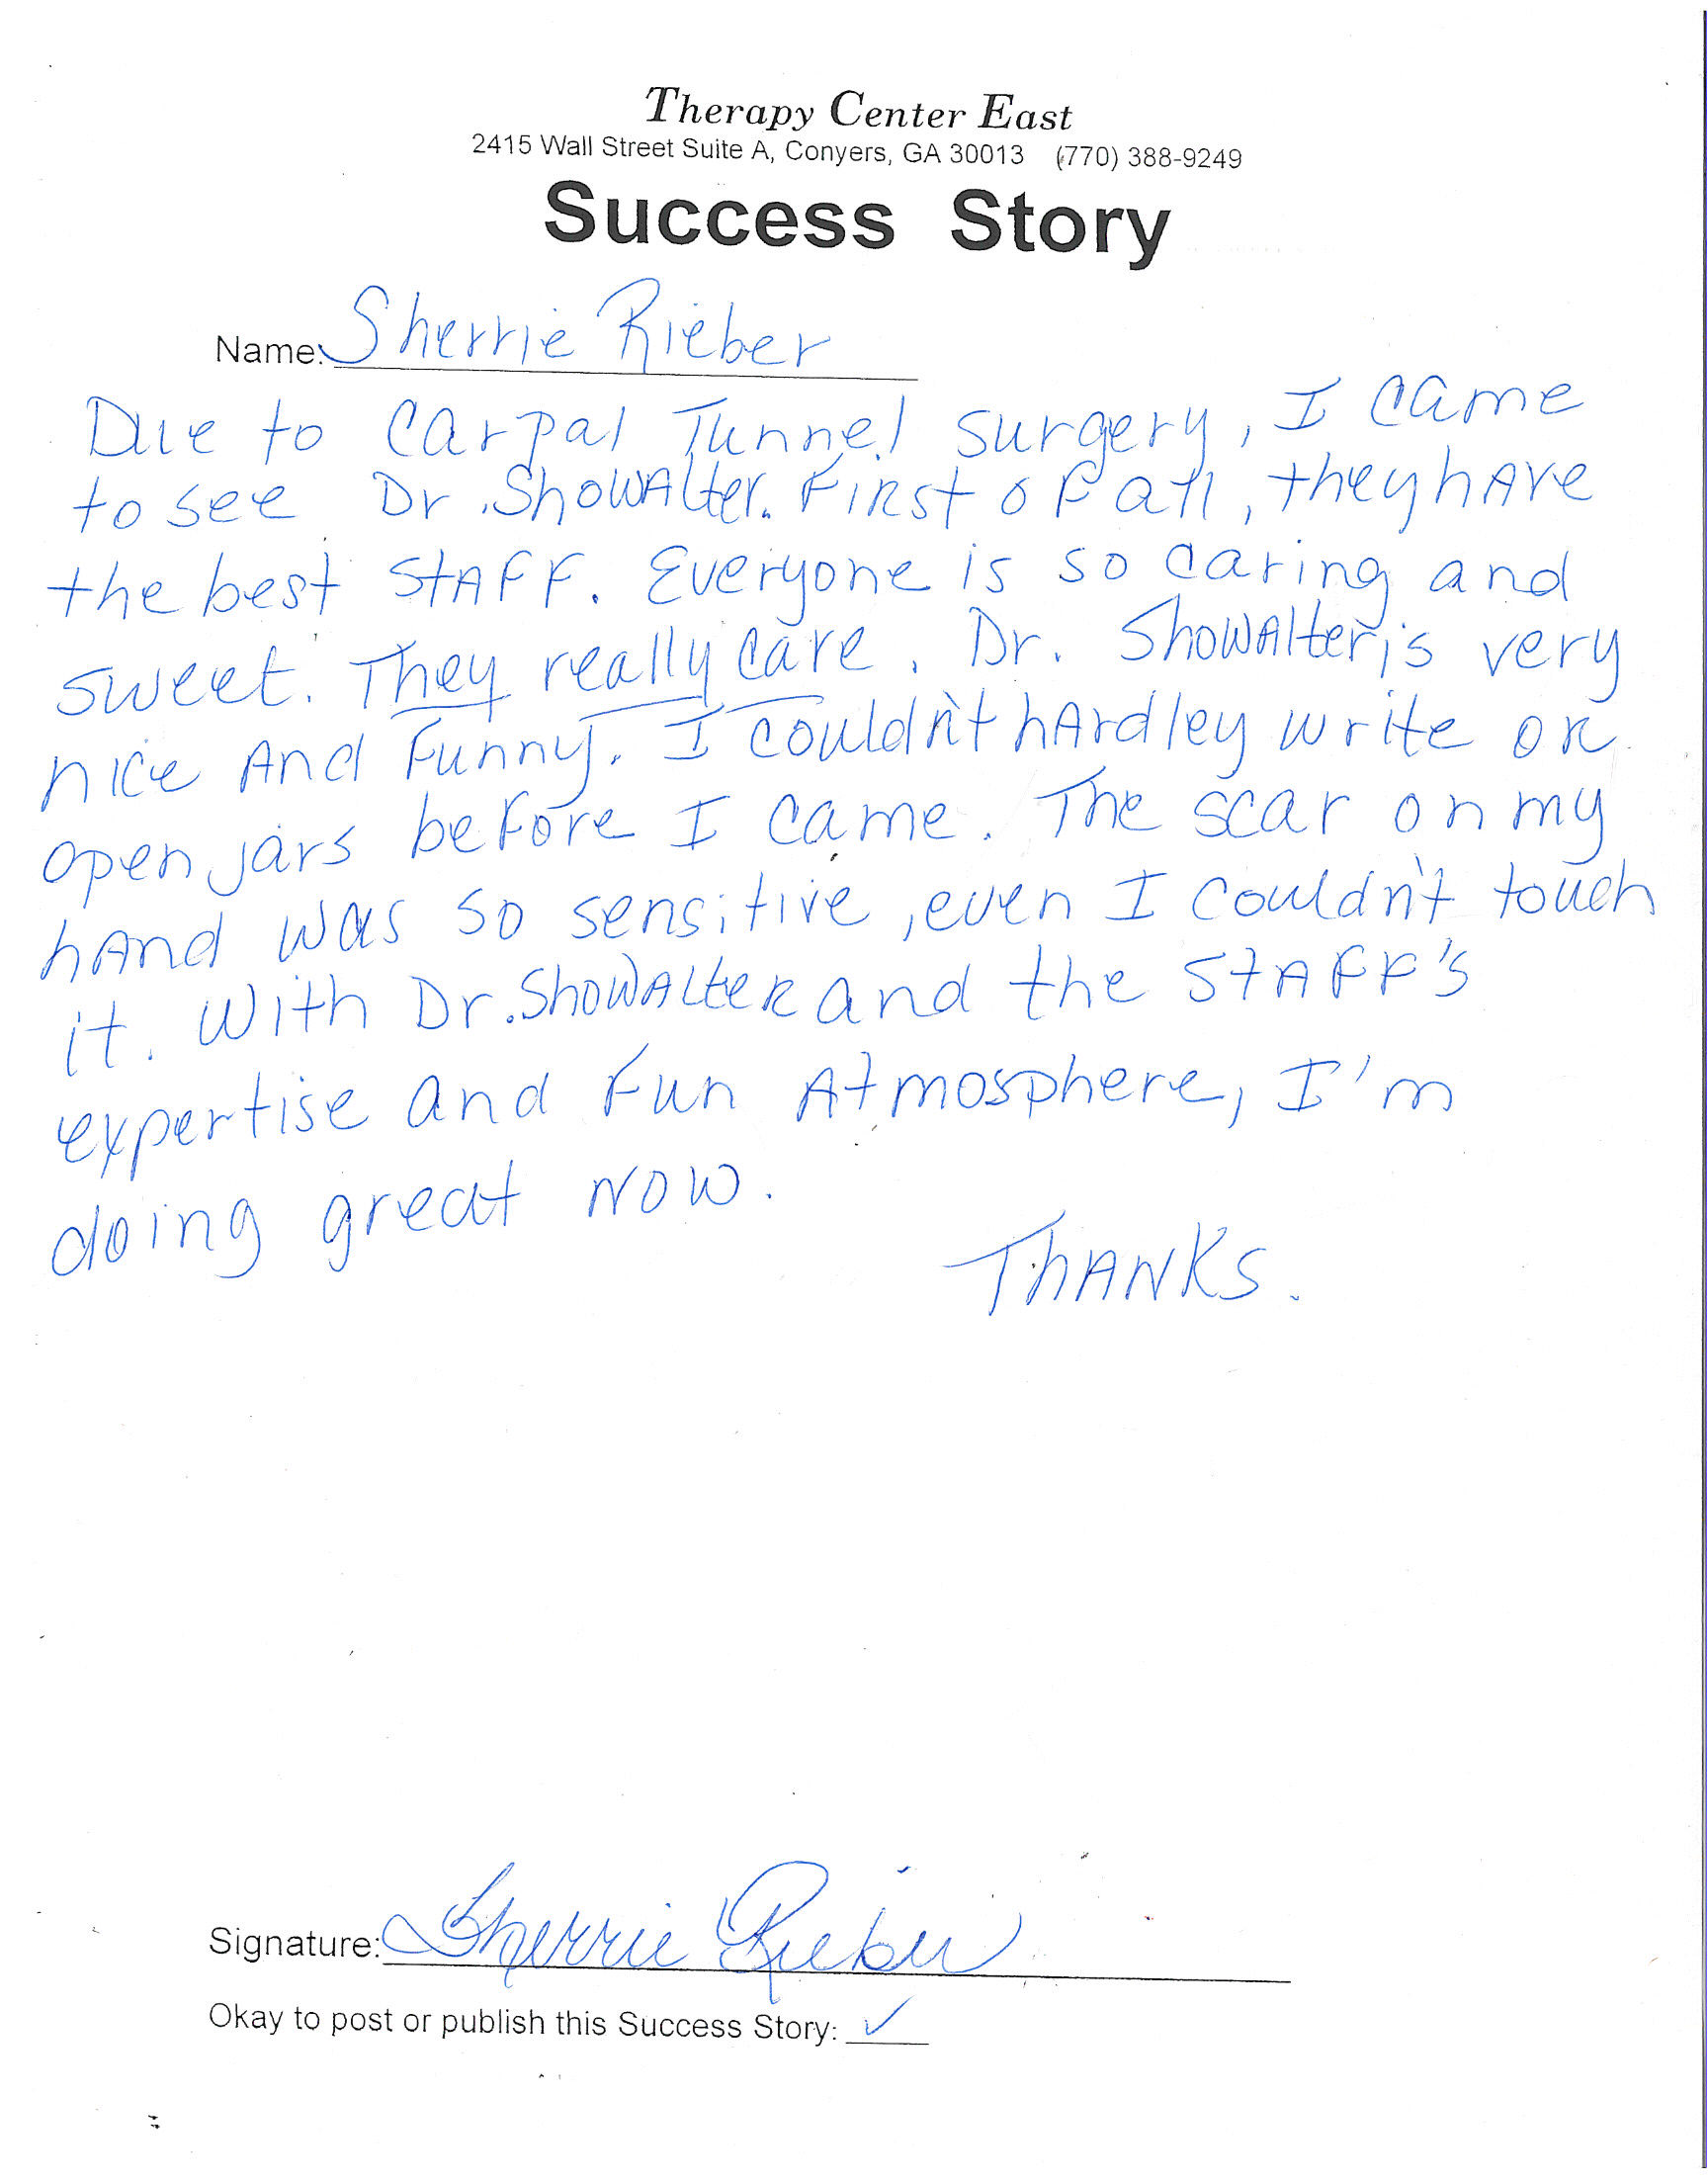 Therapy Center East
2415 Wall Street Suite A, Conyers, GA 30013 (770) 388-9249
Success Story
Name: Sherrie Rieber
Due to Carpal Tunnel surgery, I came
to see Dr. Showalter. First of all, they have
the best staff. Everyone is so caring and
sweet. They really care. Dr. Showalter is very
nice and funny. I couldn't hardley write or
open jars before I came. The scar on my
hand was so sensitive, even I couldn't touch
it. With Dr. Showalter and the staff's
expertise and fun atmosphere, I'm
doing great now.
Thanks.
Signature: Sherrie Rieber
Okay to post or publish this Success Story: ✓